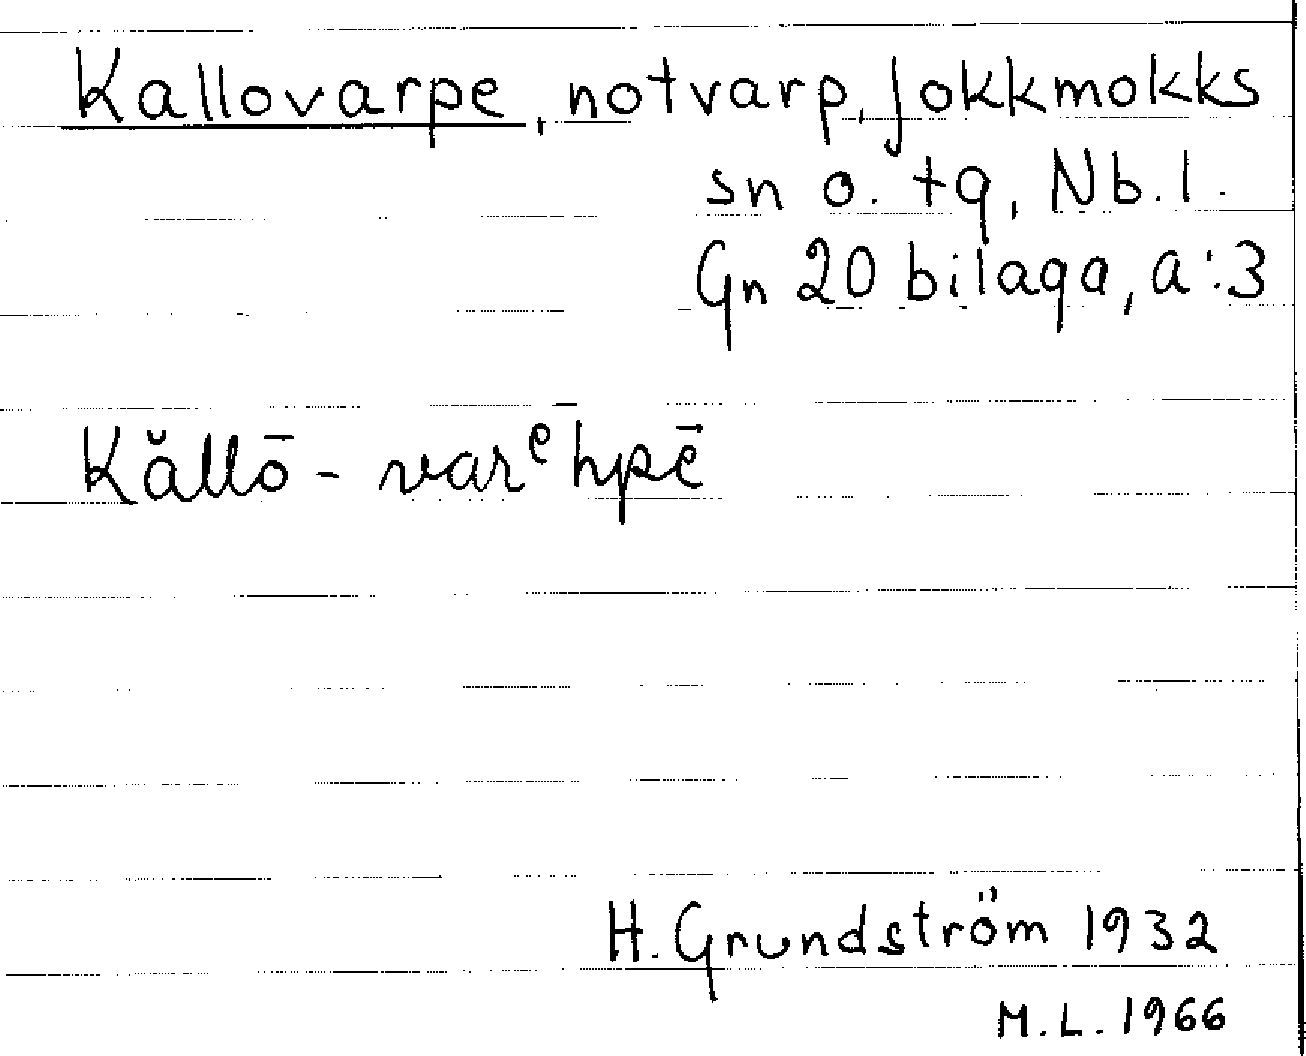 Kallovarpe, notvarp, Jokkmokks
sn o. tg, Nb. l.
Gn 20 bilaga, a:3
Kăllō - varᵉhpē
H. Grundström 1932
M.L. 1966